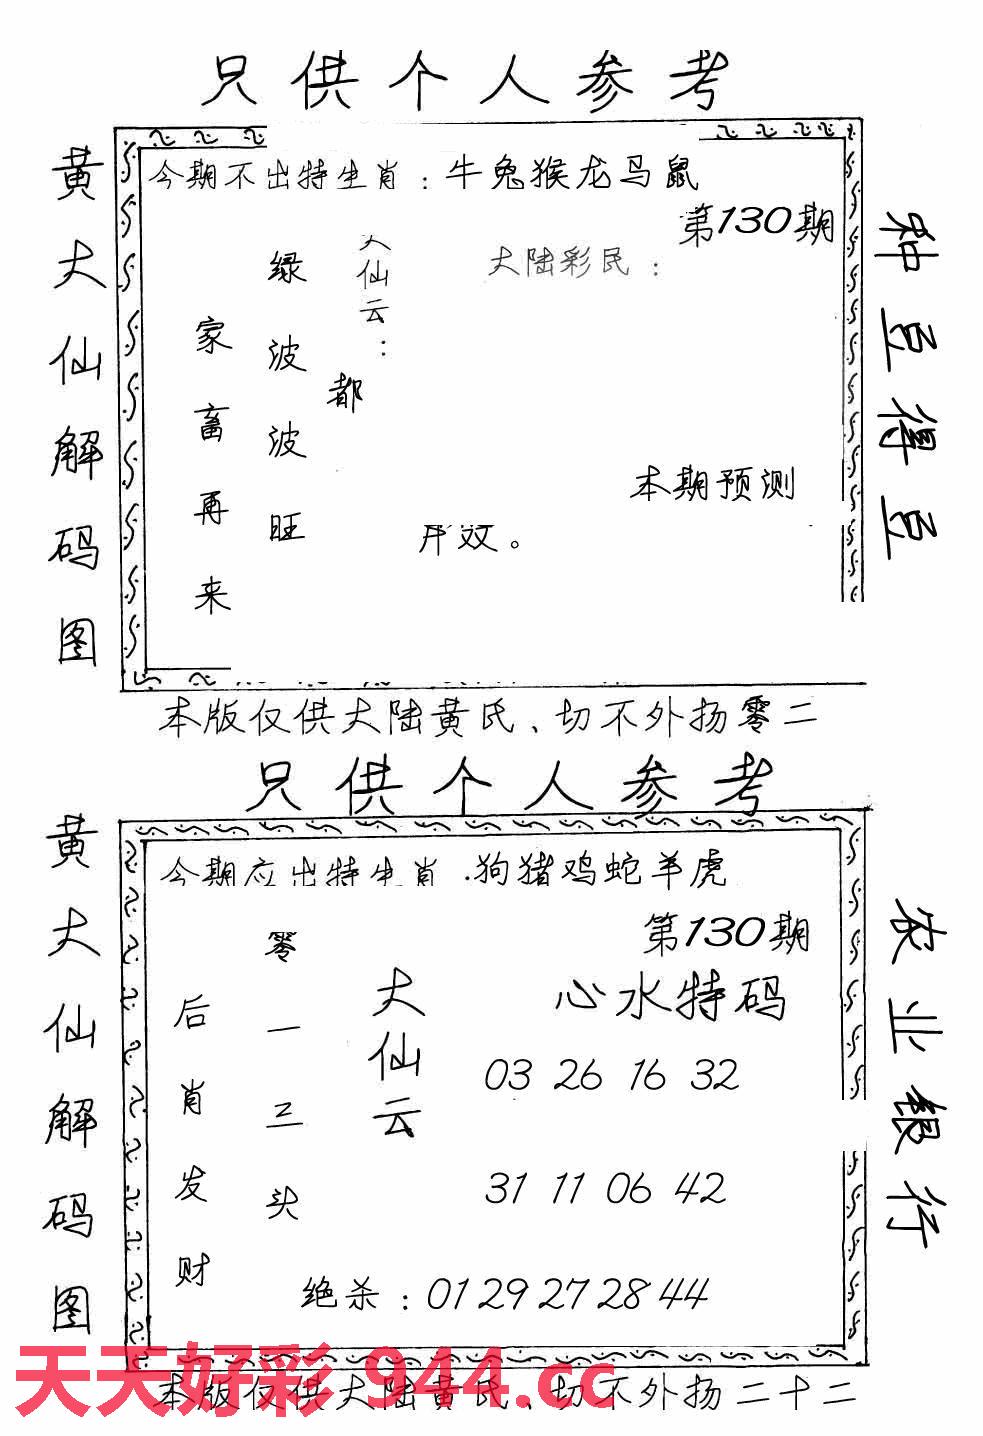 只供个人参考
黄大仙解码图
今期不出特生肖：牛兔猴龙马鼠
第130期
种豆得豆
大陆彩民：
大仙云：
都
绿波波旺
家畜再来
本期预测
效。
本版仅供大陆黄氏、切不外扬零二
只供个人参考
黄大仙解码图
今期应出特生肖.狗猪鸡蛇羊虎
第130期
农业银行
心水特码
大仙云
零一三头
后肖发财
03 26 16 32
31 11 06 42
绝杀：01 29 27 28 44
天天好彩 944.cc
本版仅供大陆黄氏、切不外扬二十二